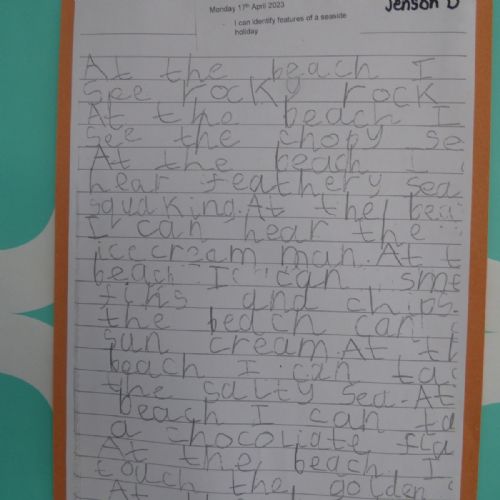 Monday 17th April 2023
Jenson D
- I can identify features of a seaside
holiday
At the beach I
see rocky rock
At the beach I
see the chopy se
At the beach I
hear feathery sea
squaking. At the bea
I can hear the
icecream man. At t
beach I can sme
fihs and chips.
the beach can
sun cream. At th
beach I can ta
the salty sea. At
beach I can ta
a chocoliate fla
At the beach I
touch the golden
At